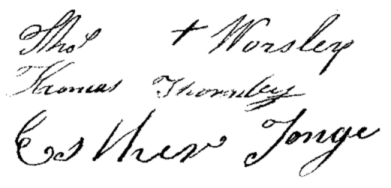 Thos + Worsley
Thomas Thornley
Esther Tonge